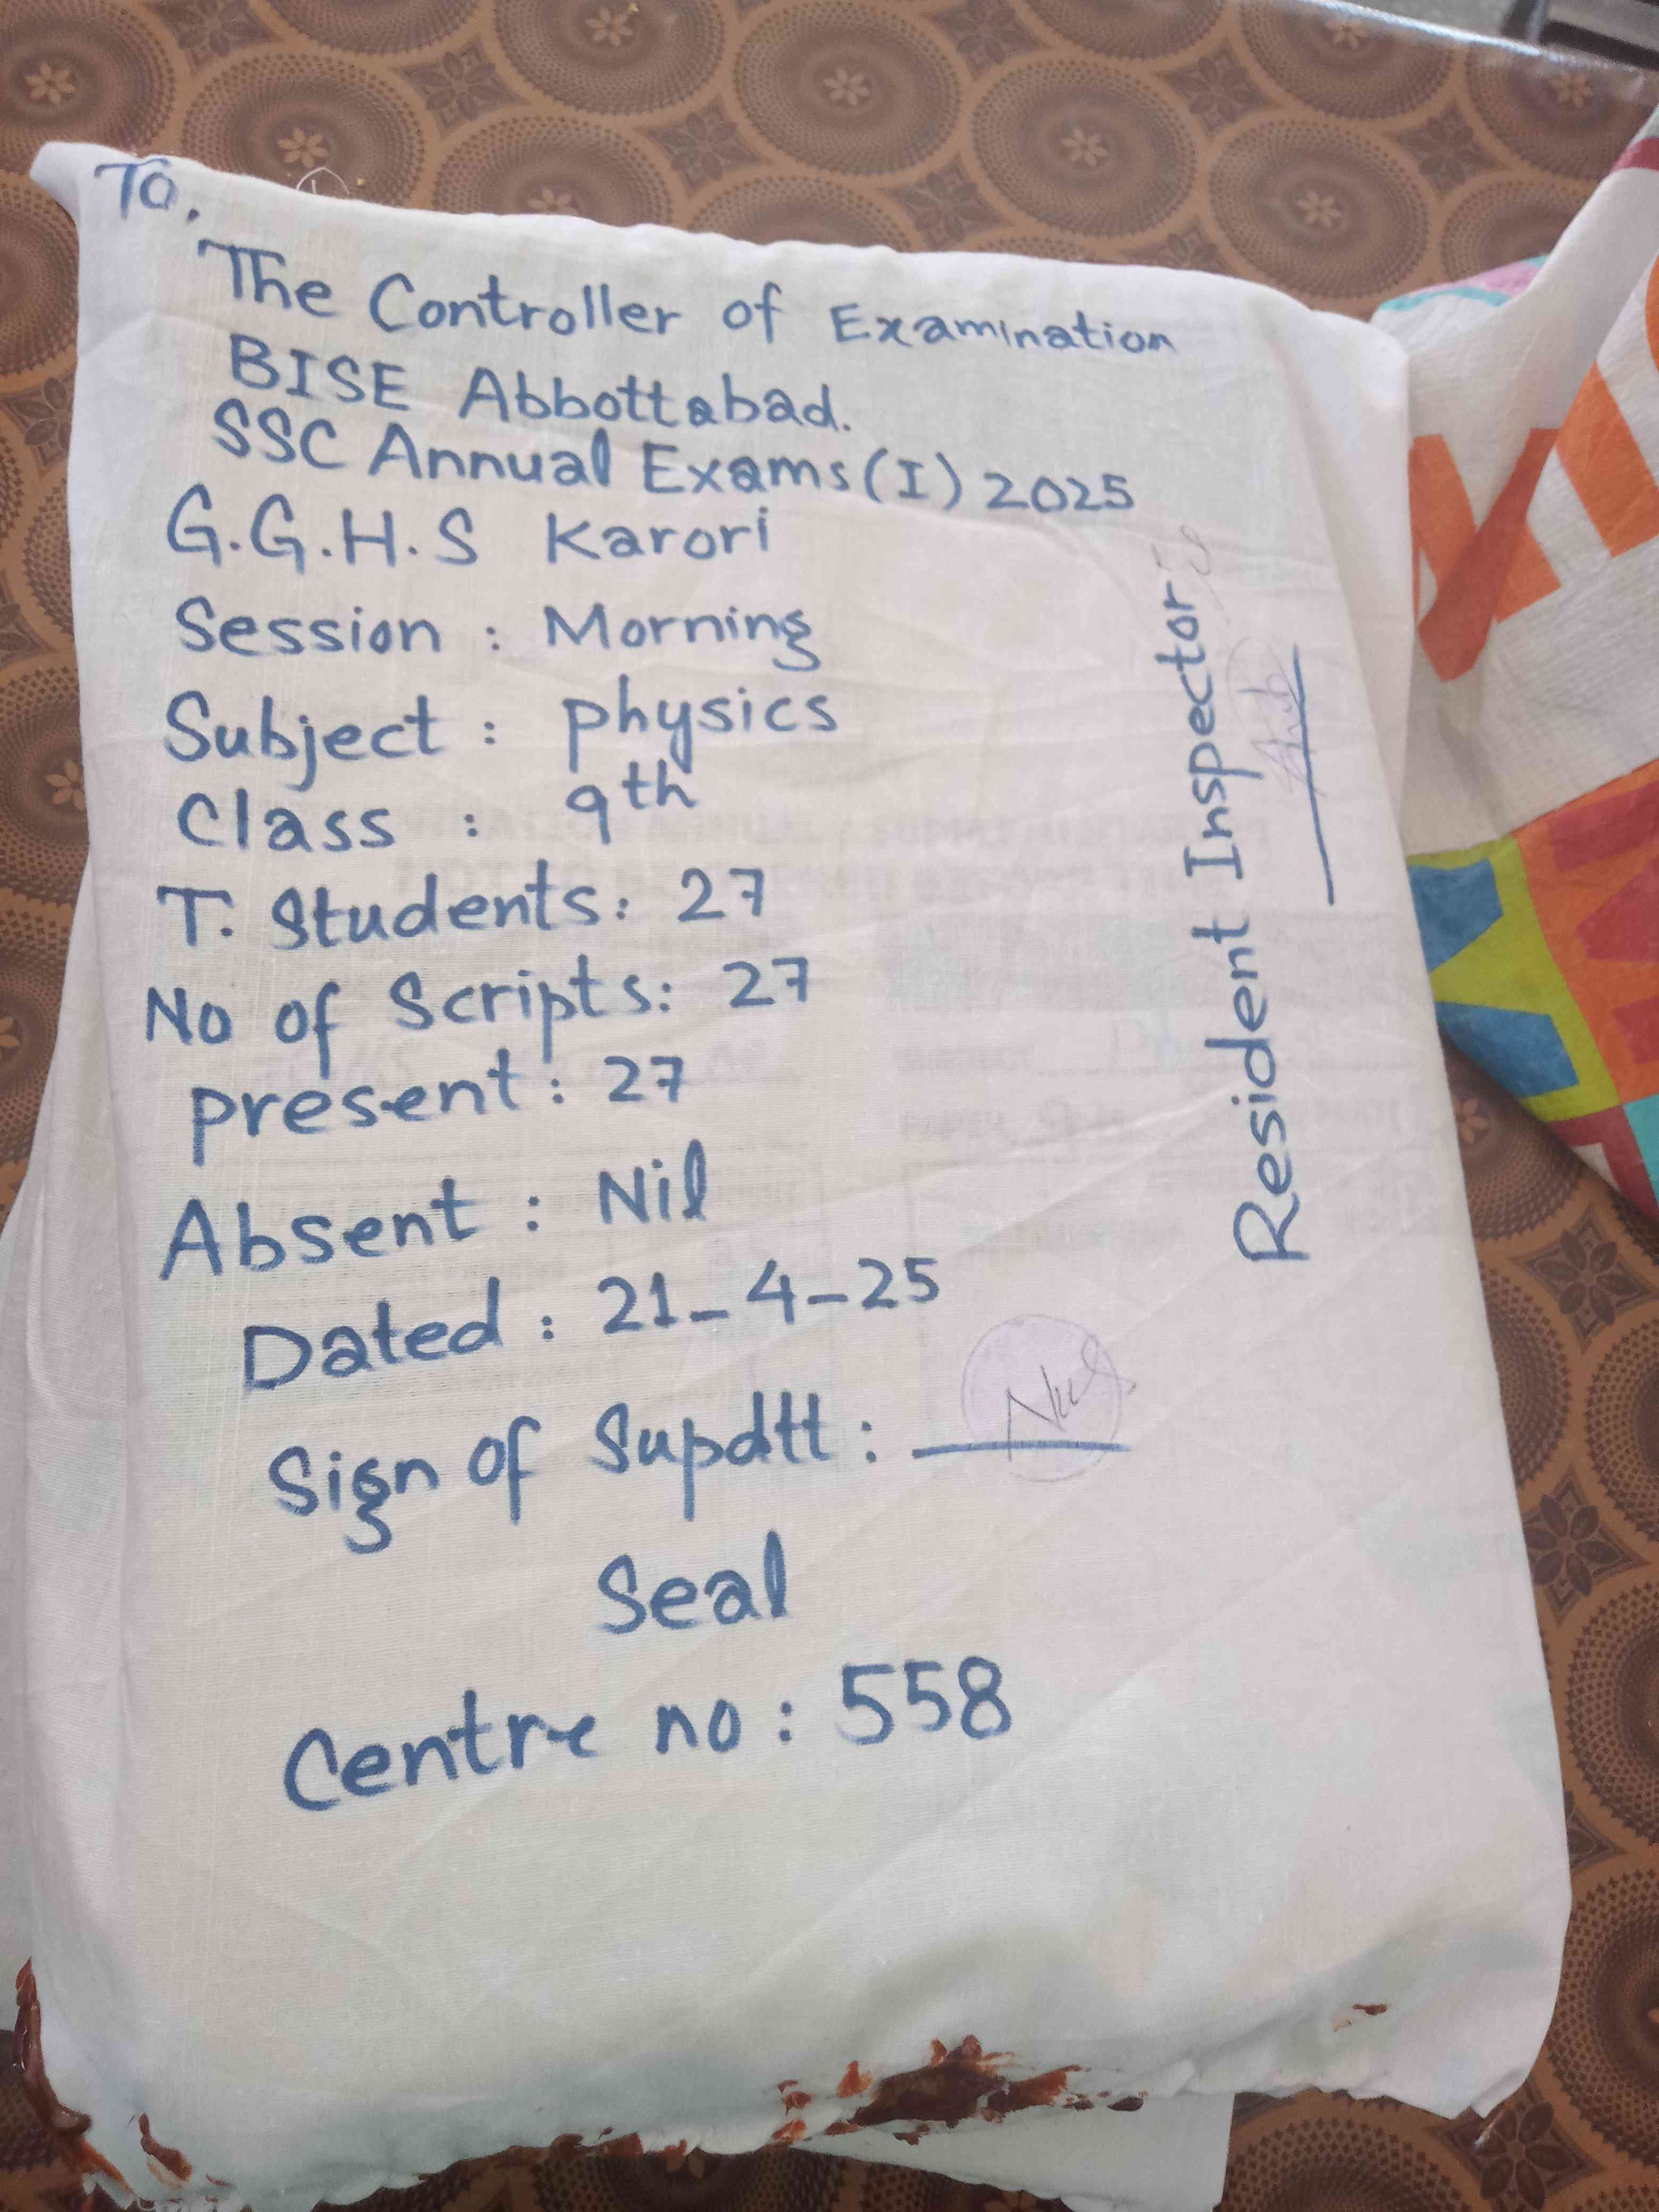 To,
The Controller of Examination
BISE Abbottabad.
SSC Annual Exams (I) 2025
G.G.H.S Karori
Session : Morning
Subject : physics
Class : 9th
T. Students: 27
No of Scripts: 27
present : 27
Absent : Nil
Dated : 21-4-25
Sign of Supdtt :
Seal
Centre no : 558
Resident Inspector